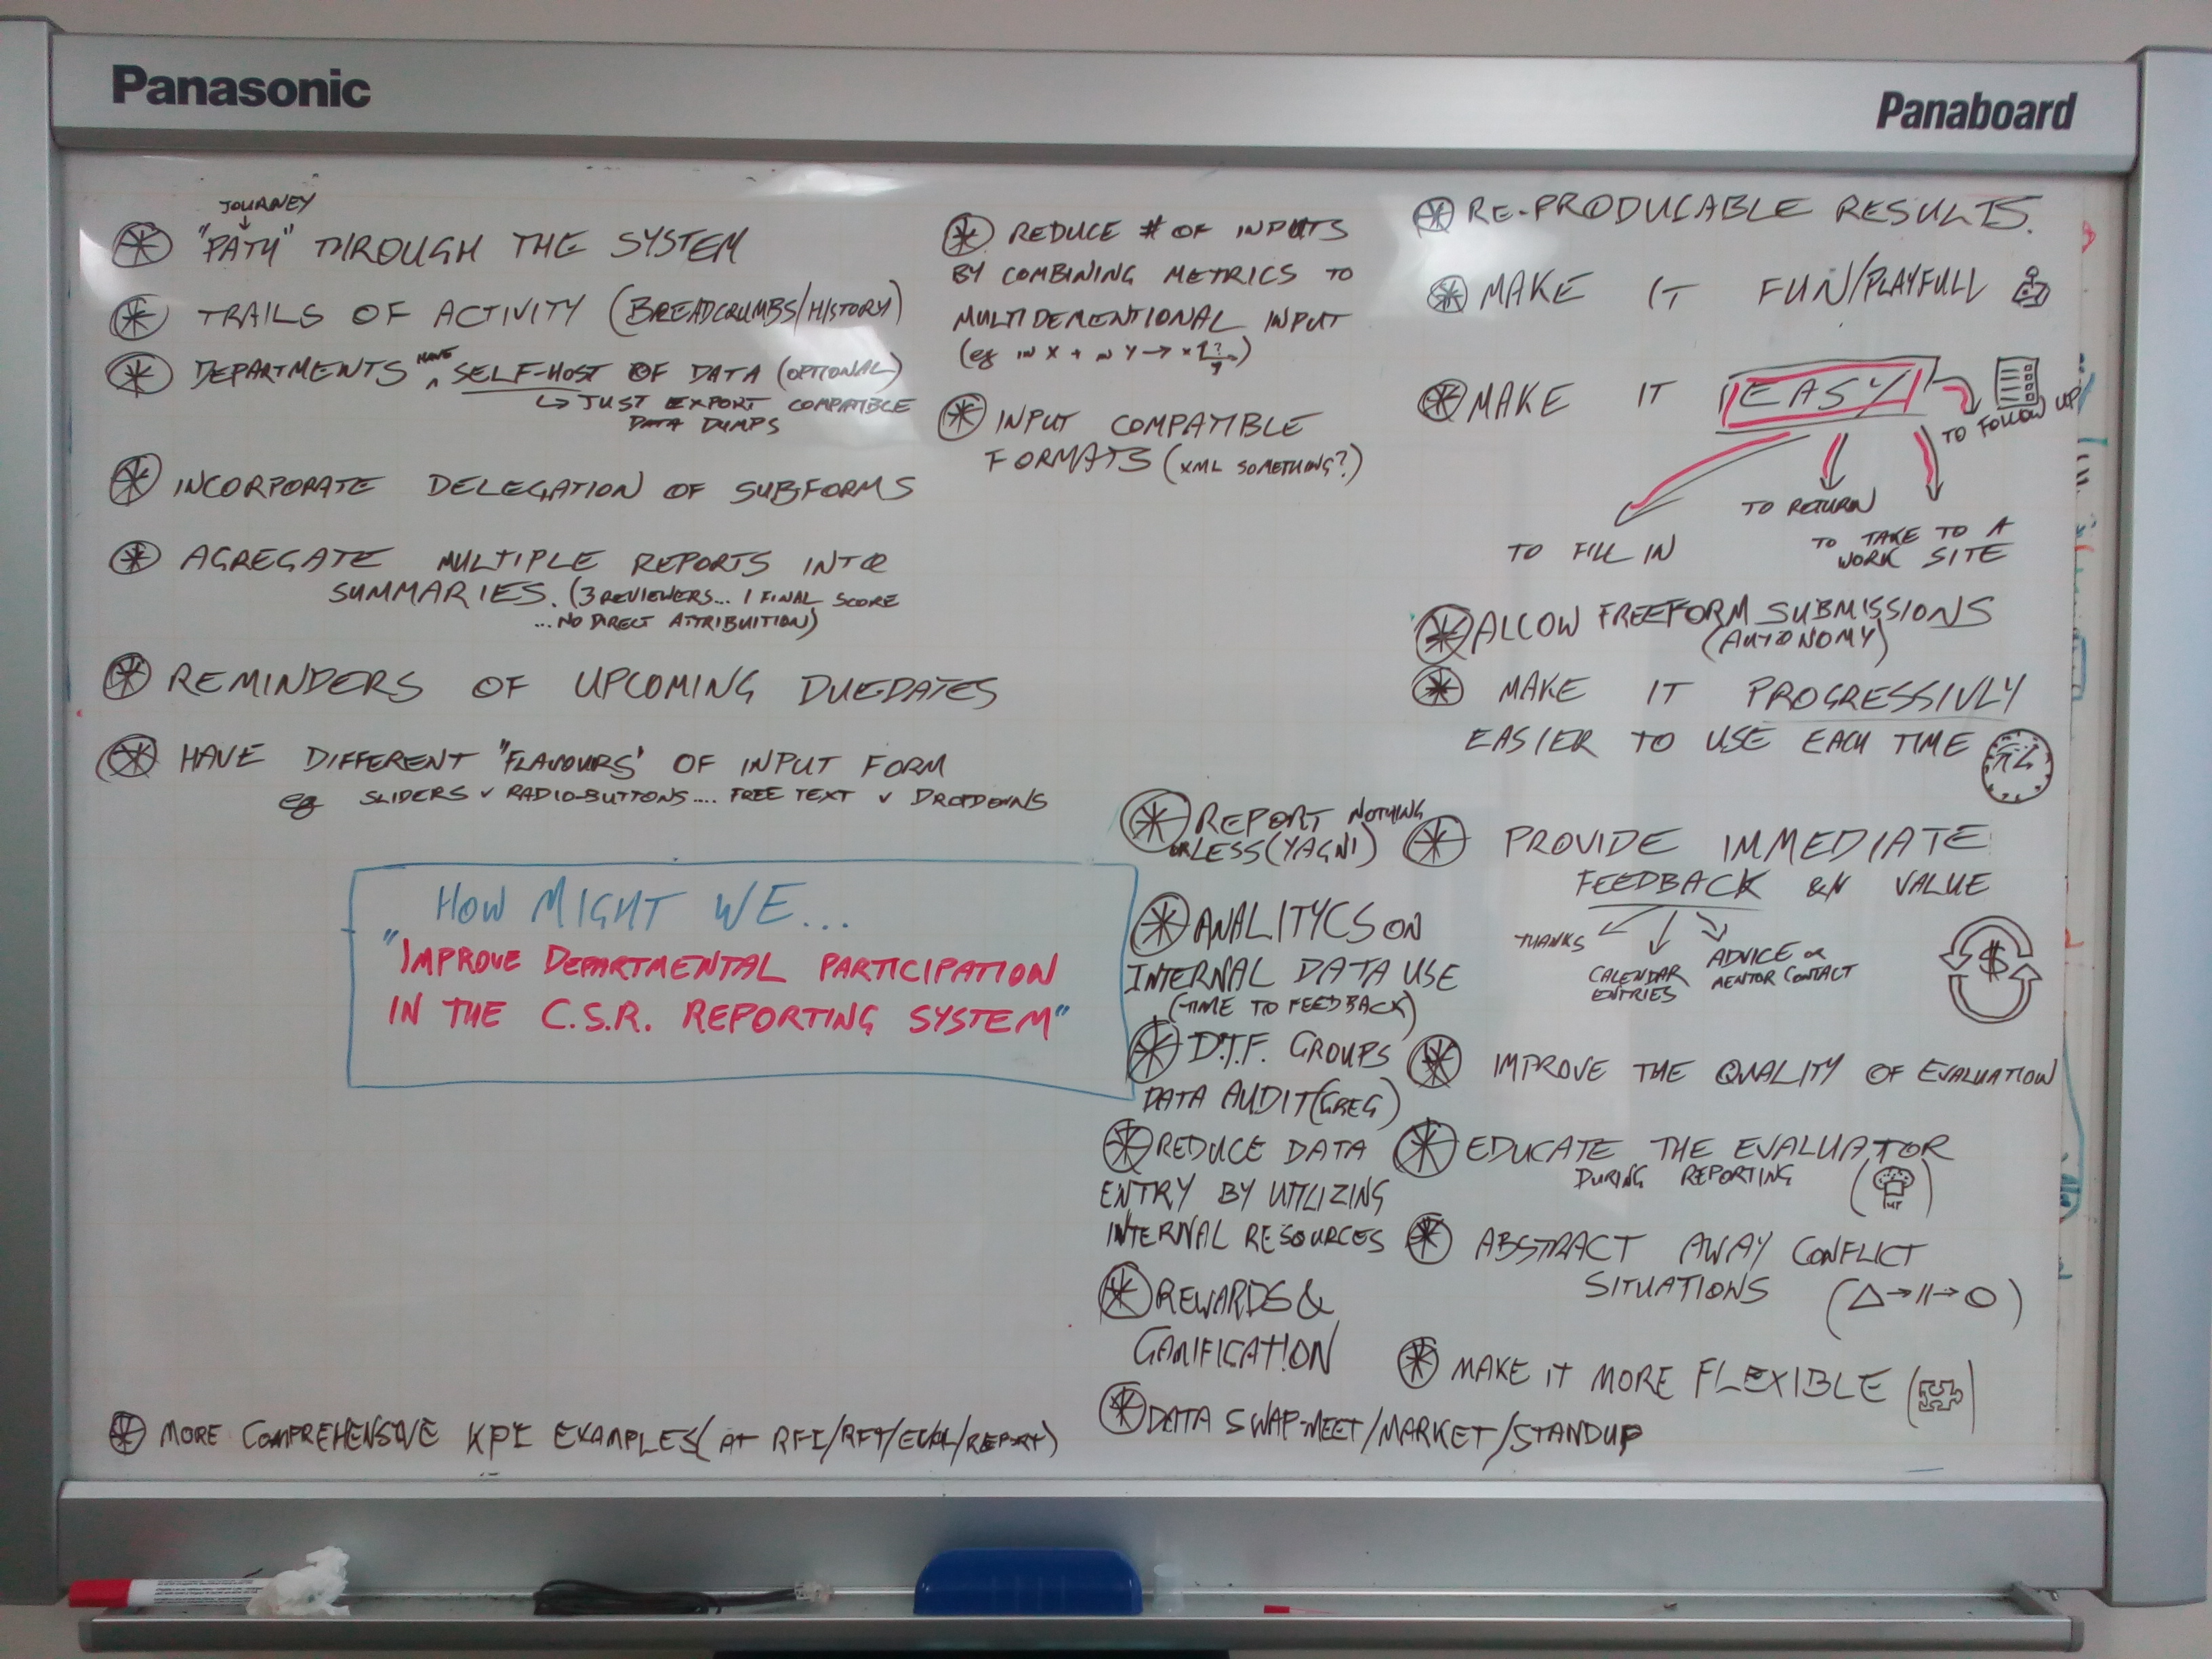 Panasonic
Panaboard
JOURNEY
"PATH" THROUGH THE SYSTEM
TRAILS OF ACTIVITY (BREADCRUMBS/HISTORY)
DEPARTMENTS HAVE SELF-HOST OF DATA (OPTIONAL)
JUST EXPORT COMPATIBLE
DATA DUMPS
INCORPORATE DELEGATION OF SUBFORMS
AGREGATE MULTIPLE REPORTS INTO
SUMMARIES. (3 REVIEWERS... 1 FINAL SCORE
...NO DIRECT ATTRIBUITION)
REMINDERS OF UPCOMING DUEDATES
HAVE DIFFERENT "FLAVOURS" OF INPUT FORM
eg SLIDERS v RADIO-BUTTONS.... FREE TEXT v DROPDOWNS
HOW MIGHT WE...
"IMPROVE DEPARTMENTAL PARTICIPATION
IN THE C.S.R. REPORTING SYSTEM"
MORE COMPREHENSIVE KPI EXAMPLES (AT RFI/RFT/EVAL/REPORT)
REDUCE # OF INPUTS
BY COMBINING METRICS TO
MULTIDEMENTIONAL INPUT
(eg IN X + IN Y →
INPUT COMPATIBLE
FORMATS (XML SOMETHING?)
REPORT NOTHING
OR LESS (YAGNI)
ANALITYCS ON
INTERNAL DATA USE
(TIME TO FEEDBACK)
D.T.F. GROUPS
DATA AUDIT (GREG)
REDUCE DATA
ENTRY BY UTILIZING
INTERNAL RESOURCES
REWARDS &
GAMIFICATION
DATA SWAP-MEET/MARKET/STANDUP
RE-PRODUCABLE RESULTS.
MAKE IT FUN/PLAYFULL
MAKE IT EASY
TO FOLLOW UP
TO RETURN
TO TAKE TO A
WORK SITE
TO FILL IN
ALLOW FREEFORM SUBMISSIONS
(AUTONOMY)
MAKE IT PROGRESSIVLY
EASIER TO USE EACH TIME
PROVIDE IMMEDIATE
FEEDBACK &/ VALUE
THANKS
CALENDAR
ENTRIES
ADVICE or
MENTOR CONTACT
$
IMPROVE THE QUALITY OF EVALUATION
EDUCATE THE EVALUATOR
DURING REPORTING
ABSTRACT AWAY CONFLICT
SITUATIONS
MAKE IT MORE FLEXIBLE